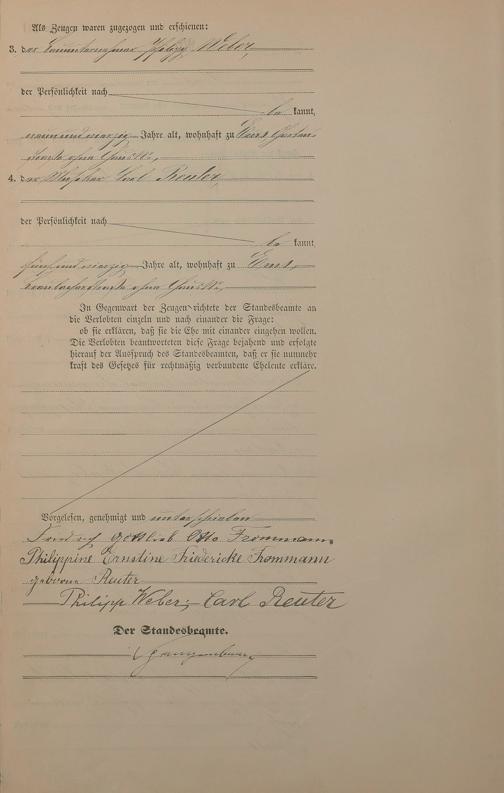 Als Zeugen waren zugezogen und erschienen:
3. der Philipp Weber,
der Persönlichkeit nach
be kannt,
neunundvierzig Jahre alt, wohnhaft zu
4. der Carl Reuter,
der Persönlichkeit nach
be kannt,
fünfundvierzig Jahre alt, wohnhaft zu Ems,
In Gegenwart der Zeugen richtete der Standesbeamte an
die Verlobten einzeln und nach einander die Frage:
ob sie erklären, daß sie die Ehe mit einander eingehen wollen.
Die Verlobten beantworteten diese Frage bejahend und erfolgte
hierauf der Ausspruch des Standesbeamten, daß er sie nunmehr
kraft des Gesetzes für rechtmäßig verbundene Eheleute erkläre.
Vorgelesen, genehmigt und unterschrieben
Friedrich Gottlieb Otto Frommann.
Philippine Ernstine Friedericke Frommann
geborene Reuter
Philipp Weber; Carl Reuter
Der Standesbeamte.